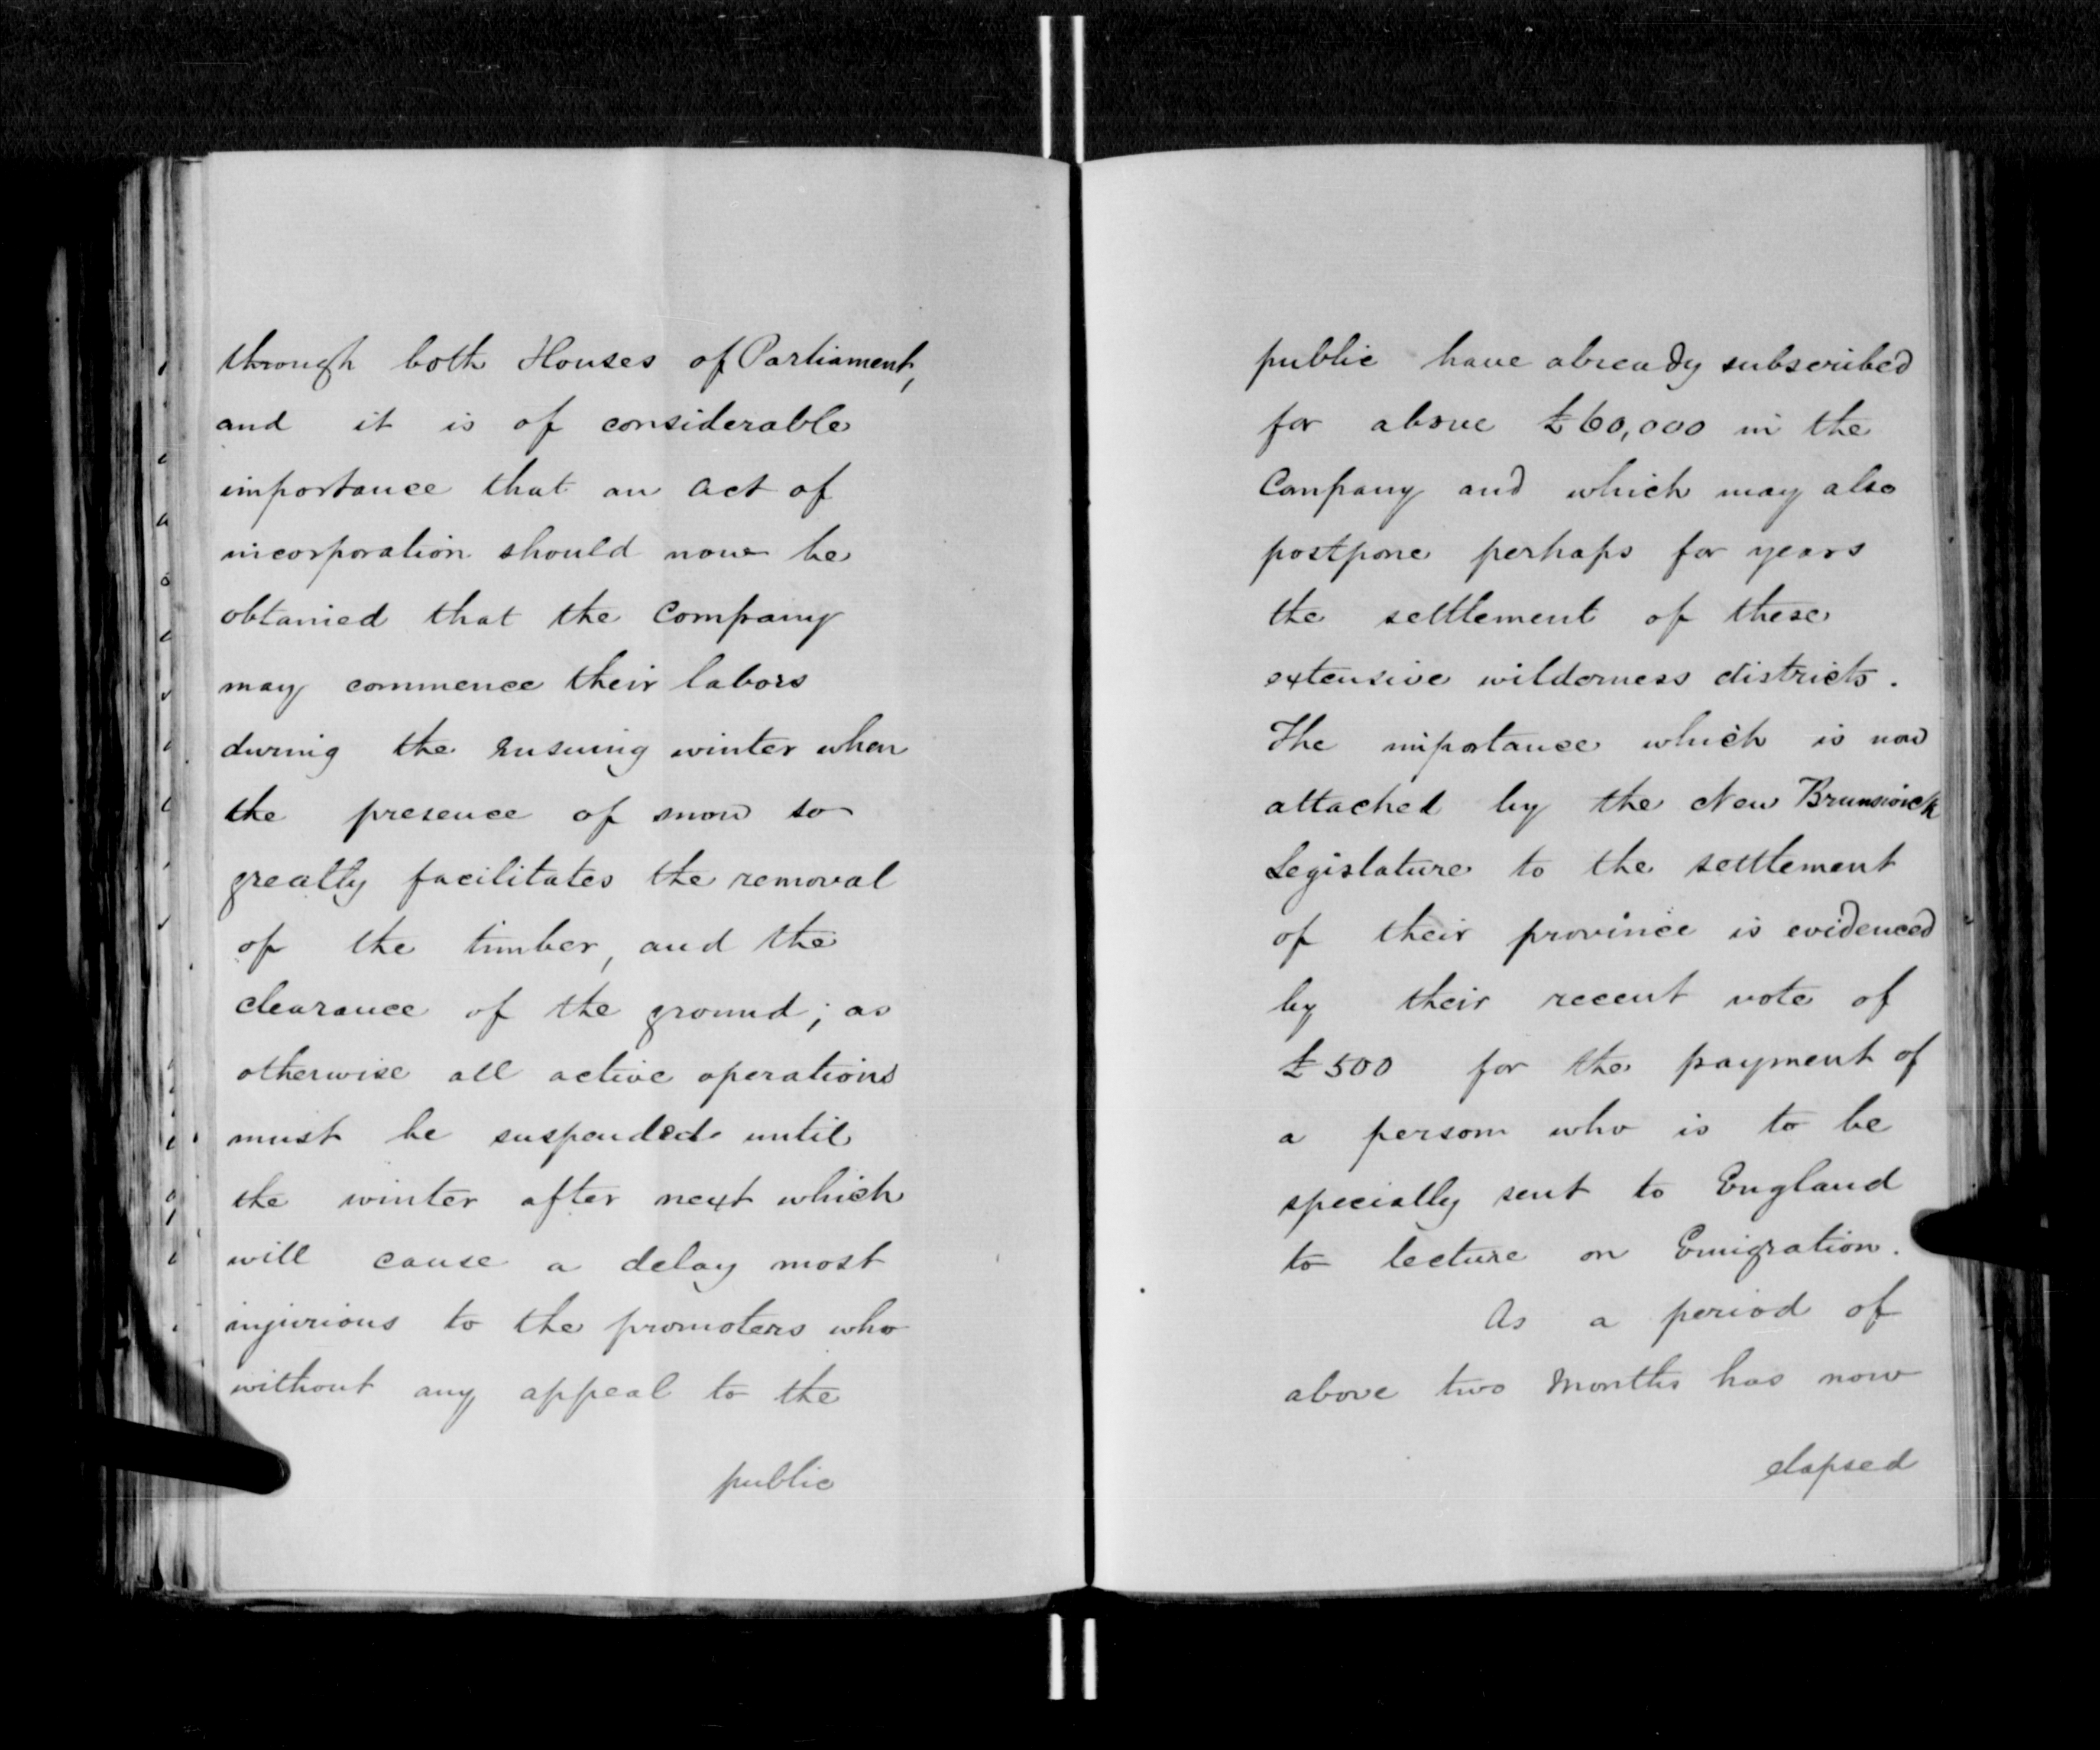 through both Houses of Parliament,
and it is of considerable
importance that an Act of
incorporation should now be
obtained that the Company
may commence their labors
during the ensuing winter when
the presence of snow so
greatly facilitates the removal
of the timber, and the
clearance of the ground; as
otherwise all active operations
must be suspended until
the winter after next which
will cause a delay most
injurious to the promoters who
without any appeal to the
public
public have already subscribed
for above £60,000 in the
Company and which may also
postpone perhaps for years
the settlement of these
extensive wilderness districts.
The importance which is now
attached by the New Brunswick
Legislature to the settlement
of their province is evidenced
by their recent vote of
£500 for the payment of
a person who is to be
specially sent to England
to lecture on Emigration.
As a period of
above two months has now
elapsed